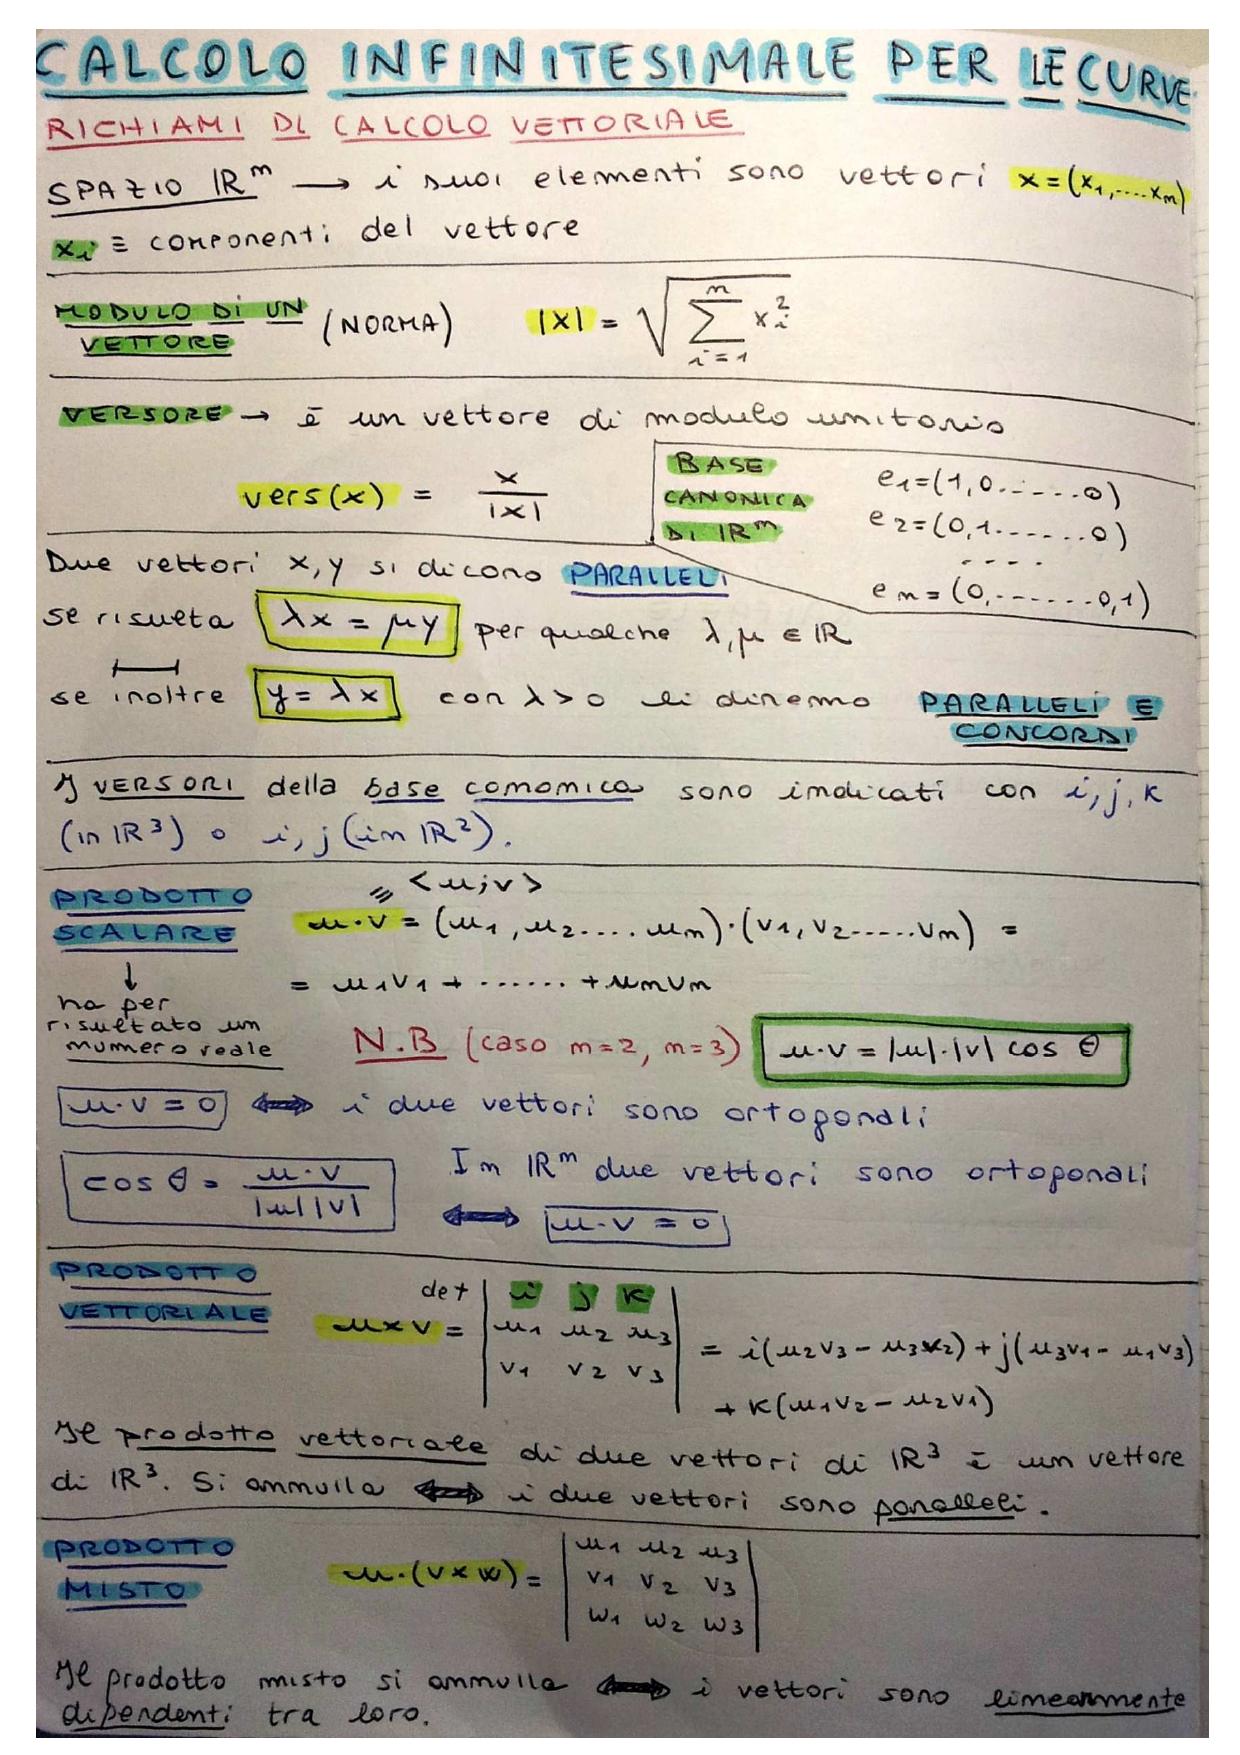 CALCOLO INFINITESIMALE PER LE CURVE
RICHIAMI DI CALCOLO VETTORIALE
SPAZIO ℝⁿ → i suoi elementi sono vettori x=(x₁,....xₙ)
xᵢ ≡ componenti del vettore
MODULO DI UN VETTORE (NORMA) |x| = √(∑ᵢ₌₁ⁿ xᵢ²)
VERSORE → è un vettore di modulo unitario
vers(x) = x/|x|
BASE CANONICA DI ℝⁿ
e₁=(1,0......0)
e₂=(0,1.......0)
....
eₙ=(0,.......0,1)
Due vettori x,y si dicono PARALLELI
se risulta λx = μy per qualche λ,μ ∈ ℝ
se inoltre y = λx con λ>0 li diremo PARALLELI E CONCORDI
I VERSORI della base canonica sono indicati con i, j, k
(in ℝ³) o i, j (in ℝ²).
PRODOTTO SCALARE
= <u;v>
u·v = (u₁,u₂....uₙ)·(v₁,v₂.....vₙ) =
= u₁v₁ + ...... + uₙvₙ
↓
ha per
risultato un
numero reale
N.B (caso n=2, n=3) u·v = |u|·|v| cos θ
u·v = 0 ⟺ i due vettori sono ortogonali
cos θ = u·v / |u||v|
In ℝⁿ due vettori sono ortogonali
⟺ u·v = 0
PRODOTTO VETTORIALE
u×v = det | i j k |
| u₁ u₂ u₃ |
| v₁ v₂ v₃ |
= i(u₂v₃ - u₃v₂) + j(u₃v₁ - u₁v₃)
+ k(u₁v₂ - u₂v₁)
Il prodotto vettoriale di due vettori di ℝ³ è un vettore
di ℝ³. Si annulla ⟺ i due vettori sono paralleli.
PRODOTTO MISTO
u·(v×w) = | u₁ u₂ u₃ |
| v₁ v₂ v₃ |
| w₁ w₂ w₃ |
Il prodotto misto si annulla ⟺ i vettori sono linearmente
dipendenti tra loro.